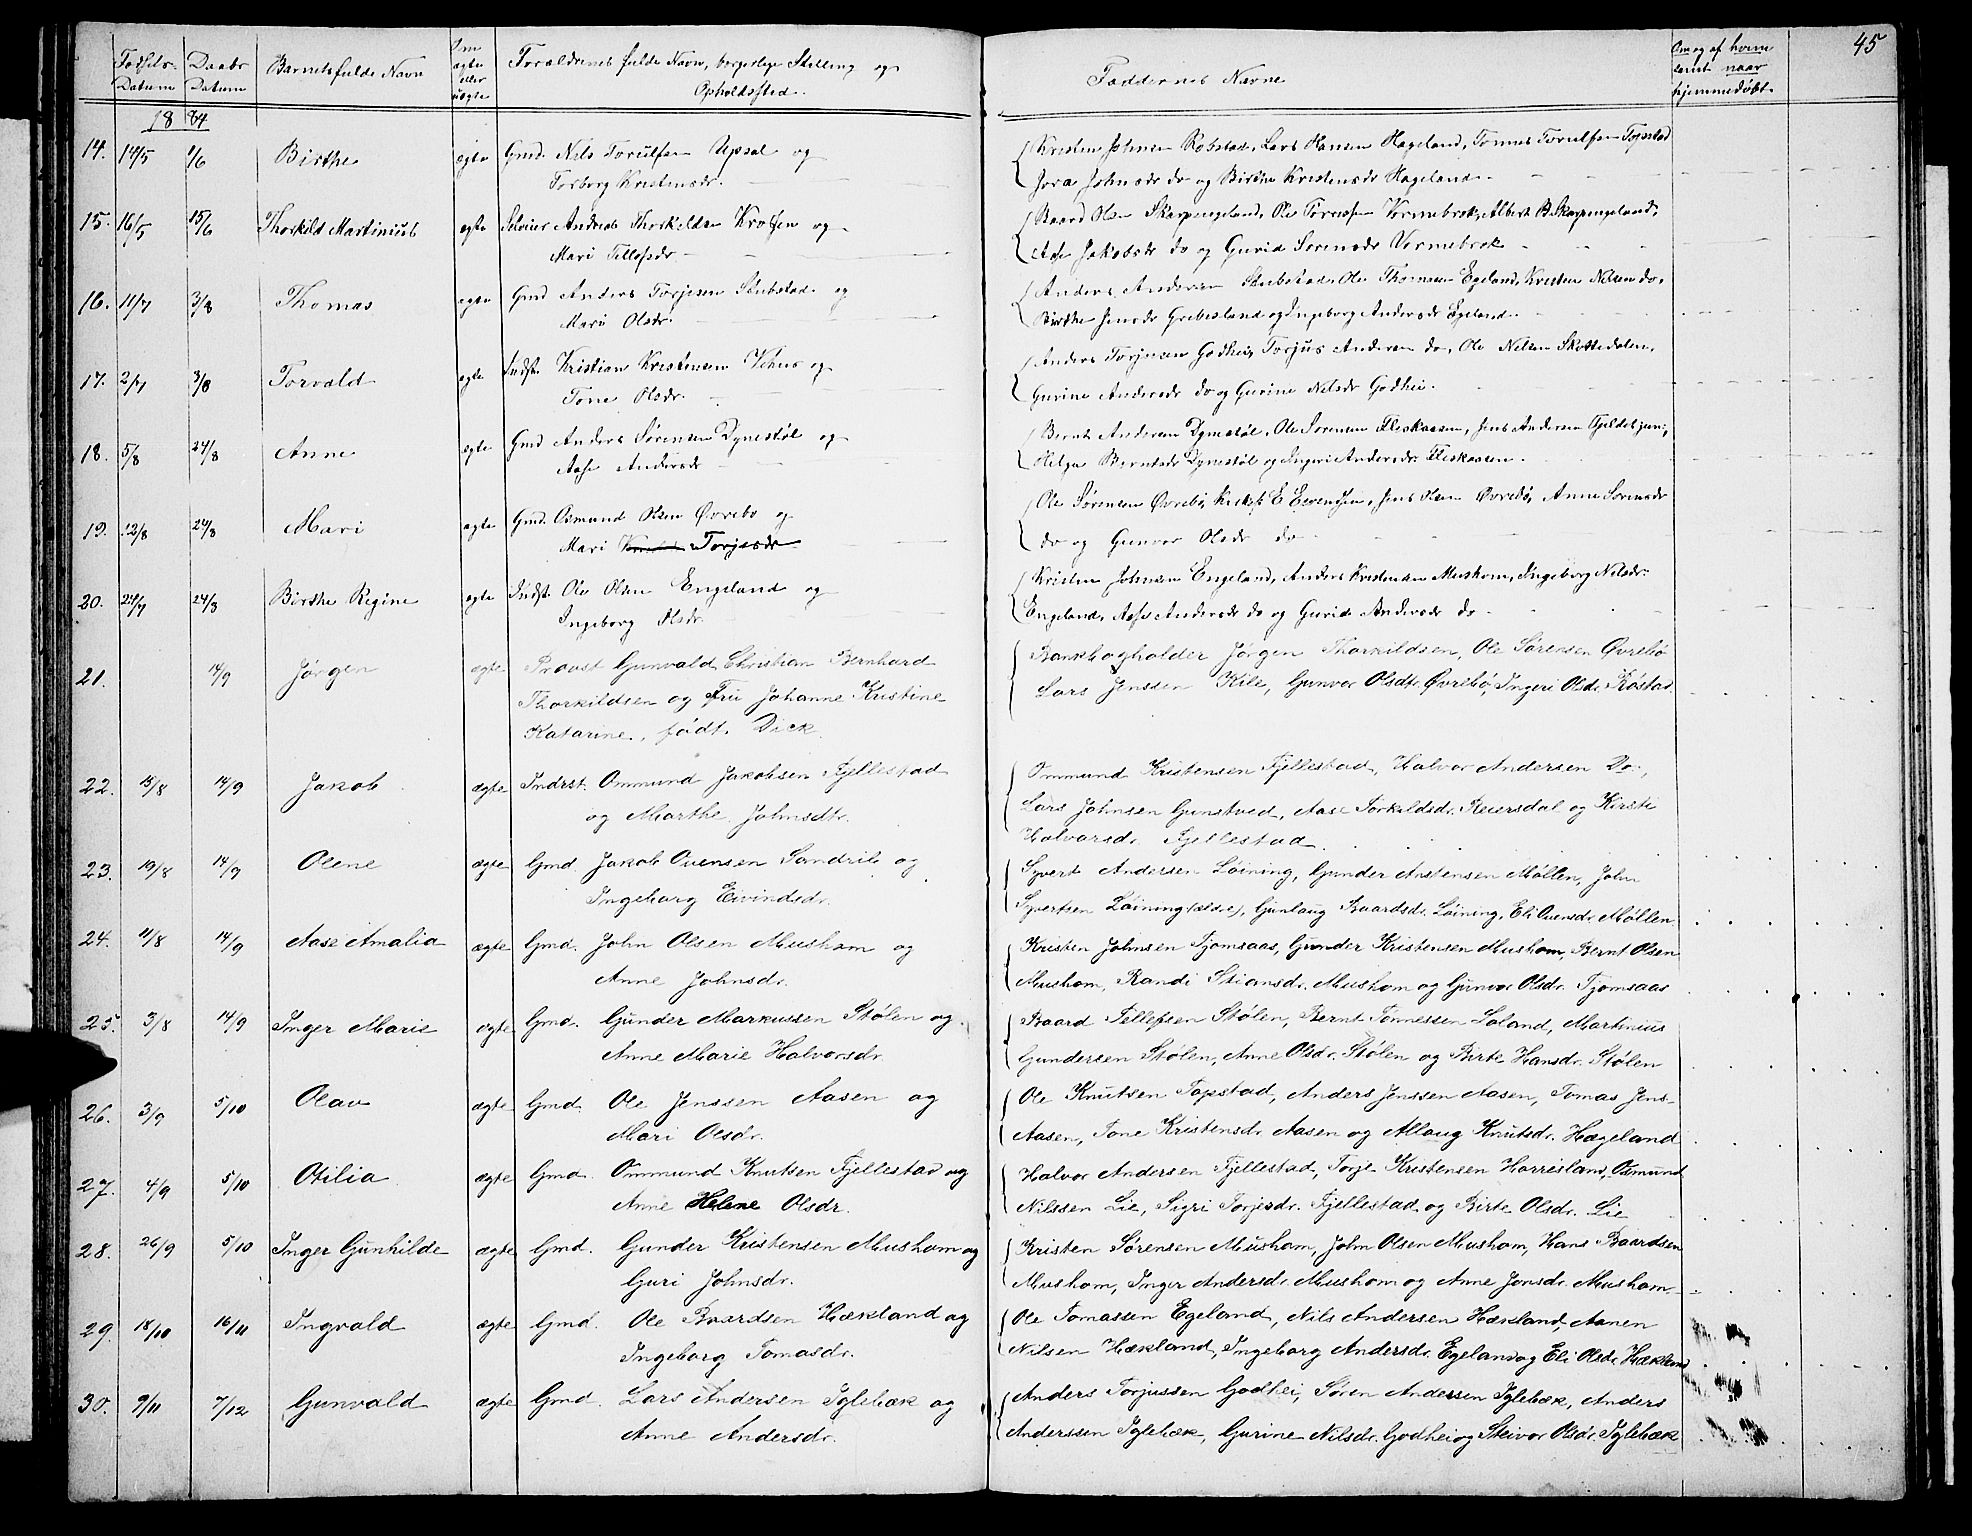 45
Fødsels- Datum Daabs Datum Barnets fulde Navn Om ægte eller uægte Forældrenes fulde Navn, borgerlige Stilling og Opholdssted. Faddernes Navne Om og af hvem samt naar hjemmedøbt.
1884
14. 14/5 1/6 Birthe ægte Gmd. Nils Torulfsen Upsal og
Torborg Kristensdr.
Kristen Johnsen Røbstad, Lars Hansen Hageland, Tønnes Torulfsen Topstad
Jora Johnsdr do og Birthe Kristensdr Hageland.
15. 16/5 15/6 Thorkild Martinius ægte Andreas Thorkildsen og
Mari Tellefsdr.
Baard Olsen Skarpengeland, Ole Tørresen Vormebrok, Albert B. Skarpengeland,
Aase Jakobsdr do og Gurid Sørensdr Vormebrok
16. 11/7 3/8 Thomas ægte Gmd Anders Torjesen Stubstad og
Mari Olsdr.
Anders Andersen Stubstad, Ole Thomsen Egeland, Kristen Nilsen do.
Birthe Jensdr Grebesland og Ingeborg Andersdr Egeland.
17. 2/7 3/8 Torvald ægte Indst. Kristian Kristensen Vehus og
Tone Olsdr.
Anders Torjusen Godhei, Torjus Andersen do, Ole Nilsen Skottedalen,
Gurine Andersdr do og Gurine Nilsdr Godhei.
18. 5/8 24/8 Anne ægte Gmd Anders Sørensen Dynestøl og
Aase Andersdr
Bernt Andersen Dynestøl, Ole Sørensen Fleskaasen, Jens Andersen jun.,
Helga Berntsdr Dynestøl og Ingeri Andersdr. Fleskaasen.
19. 12/8 24/8 Mari ægte Gmd. Osmund Olsen Øvrebø og
Mari Torjesdr
Ole Sørensen Øvrebø, E. Evensen, Jens Olsen Øvrebø, Anne Sørensdr
do og Gunvor Olsdr do
20. 24/7 24/8 Birthe Regine ægte Indst. Ole Olsen Engeland og
Ingeborg Olsdr.
Kristen Johnsen Engeland, Anders Kristensen Mushom, Ingeborg Nilsdr.
Engeland, Aase Andersdr do og Gurid Andersdr do
21. 14/9 Jørgen ægte Provst Gunvald Christian Bernhard
Thorkildsen og Fru Johanne Kristine
Katarine, født Dick
Bankbogholder Jørgen Thorkildsen, Ole Sørensen Øvrebø
Lars Jenssen Kile, Gunvor Olsdr. Øvrebø, Ingeri Olsdr. Røstad
22. 15/8 14/9 Jakob ægte Inderst. Ommund Jakobsen Fjellestad
og Marthe Johnsdtr.
Ommund Kristensen Fjellestad, Halvor Andersen Do.,
Lars Johnsen Gunstved, Aase Torkildsdr. Reiersdal og Kirsti
Halvorsdr. Fjellestad
23. 19/8 14/9 Olene ægte Gmd. Jakob Ovensen Sandrib og
Ingeborg Eivindsdr.
Syvert Andersen Løining, Gunder Anstensen Møllen, John
Syvertsen Løining (ældre), Gunlaug Baardsdr. Løining, Eli Ovensdr. Møllen
24. 11/8 14/9 Aase Amalia ægte Gmd. John Olsen Mushom og
Anne Johnsdr.
Kristen Johnsen Fjomsaas, Gunder Kristensen Mushom, Bernt Olsen
Mushom, Randi Stiansdr. Mushom og Gunvor Olsdr. Fjomsaas
25. 3/8 14/9 Inger Marie ægte Gmd. Gunder Markussen Stølen og
Anne Marie Halvorsdr.
Baard Tellefsen Stølen, Bernt Tønnessen Loland, Martinius
Gundersen Stølen, Anne Olsdr. Stølen og Birte Hansdr. Stølen
26. 3/9 5/10 Olav ægte Gmd. Ole Jenssen Aasen og
Mari Olsdr.
Ole Knutsen Topstad, Anders Jenssen Aasen, Tomas Jens-
Aasen, Tone Kristensdr. Aasen og Allaug Knutsdr. Hægeland
27. 4/9 5/10 Otilia ægte Gmd. Ommund Knutsen Fjellestad og
Anne Helene Olsdr.
Halvor Andersen Fjellestad, Torje Kristensen Horrisland, Osmund
Nilssen Lie, Sigri Torjesdr. Fjellestad og Birte Olsdr. Lie
28. 26/9 5/10 Inger Gunhilde ægte Gmd. Gunder Kristensen Mushom og
Guri Johnsdr.
Kristen Sørensen Mushom, John Olsen Mushom, Hans Baardsen
Mushom, Inger Andersdr. Mushom og Anne Jonsdr. Mushom
29. 18/10 16/11 Ingvald ægte Gmd. Ole Baardsen Hækland og
Ingeborg Tomasdr.
Ole Tomassen Egeland, Nils Andersen Hækland, Aanen
Nilsen Hækland, Ingeborg Andersdr. Egeland og Eli Olsdr. Hækland
30. 9/11 7/12 Gunvald ægte Gmd. Lars Andersen Iglebæk og
Anne Andersdr.
Anders Torjussen Godhei, Søren Andersen Iglebæk, Anders
Anderssen Iglebæk, Gurine Nilsdr. Godhei og Steivor Olsdr. Iglebæk